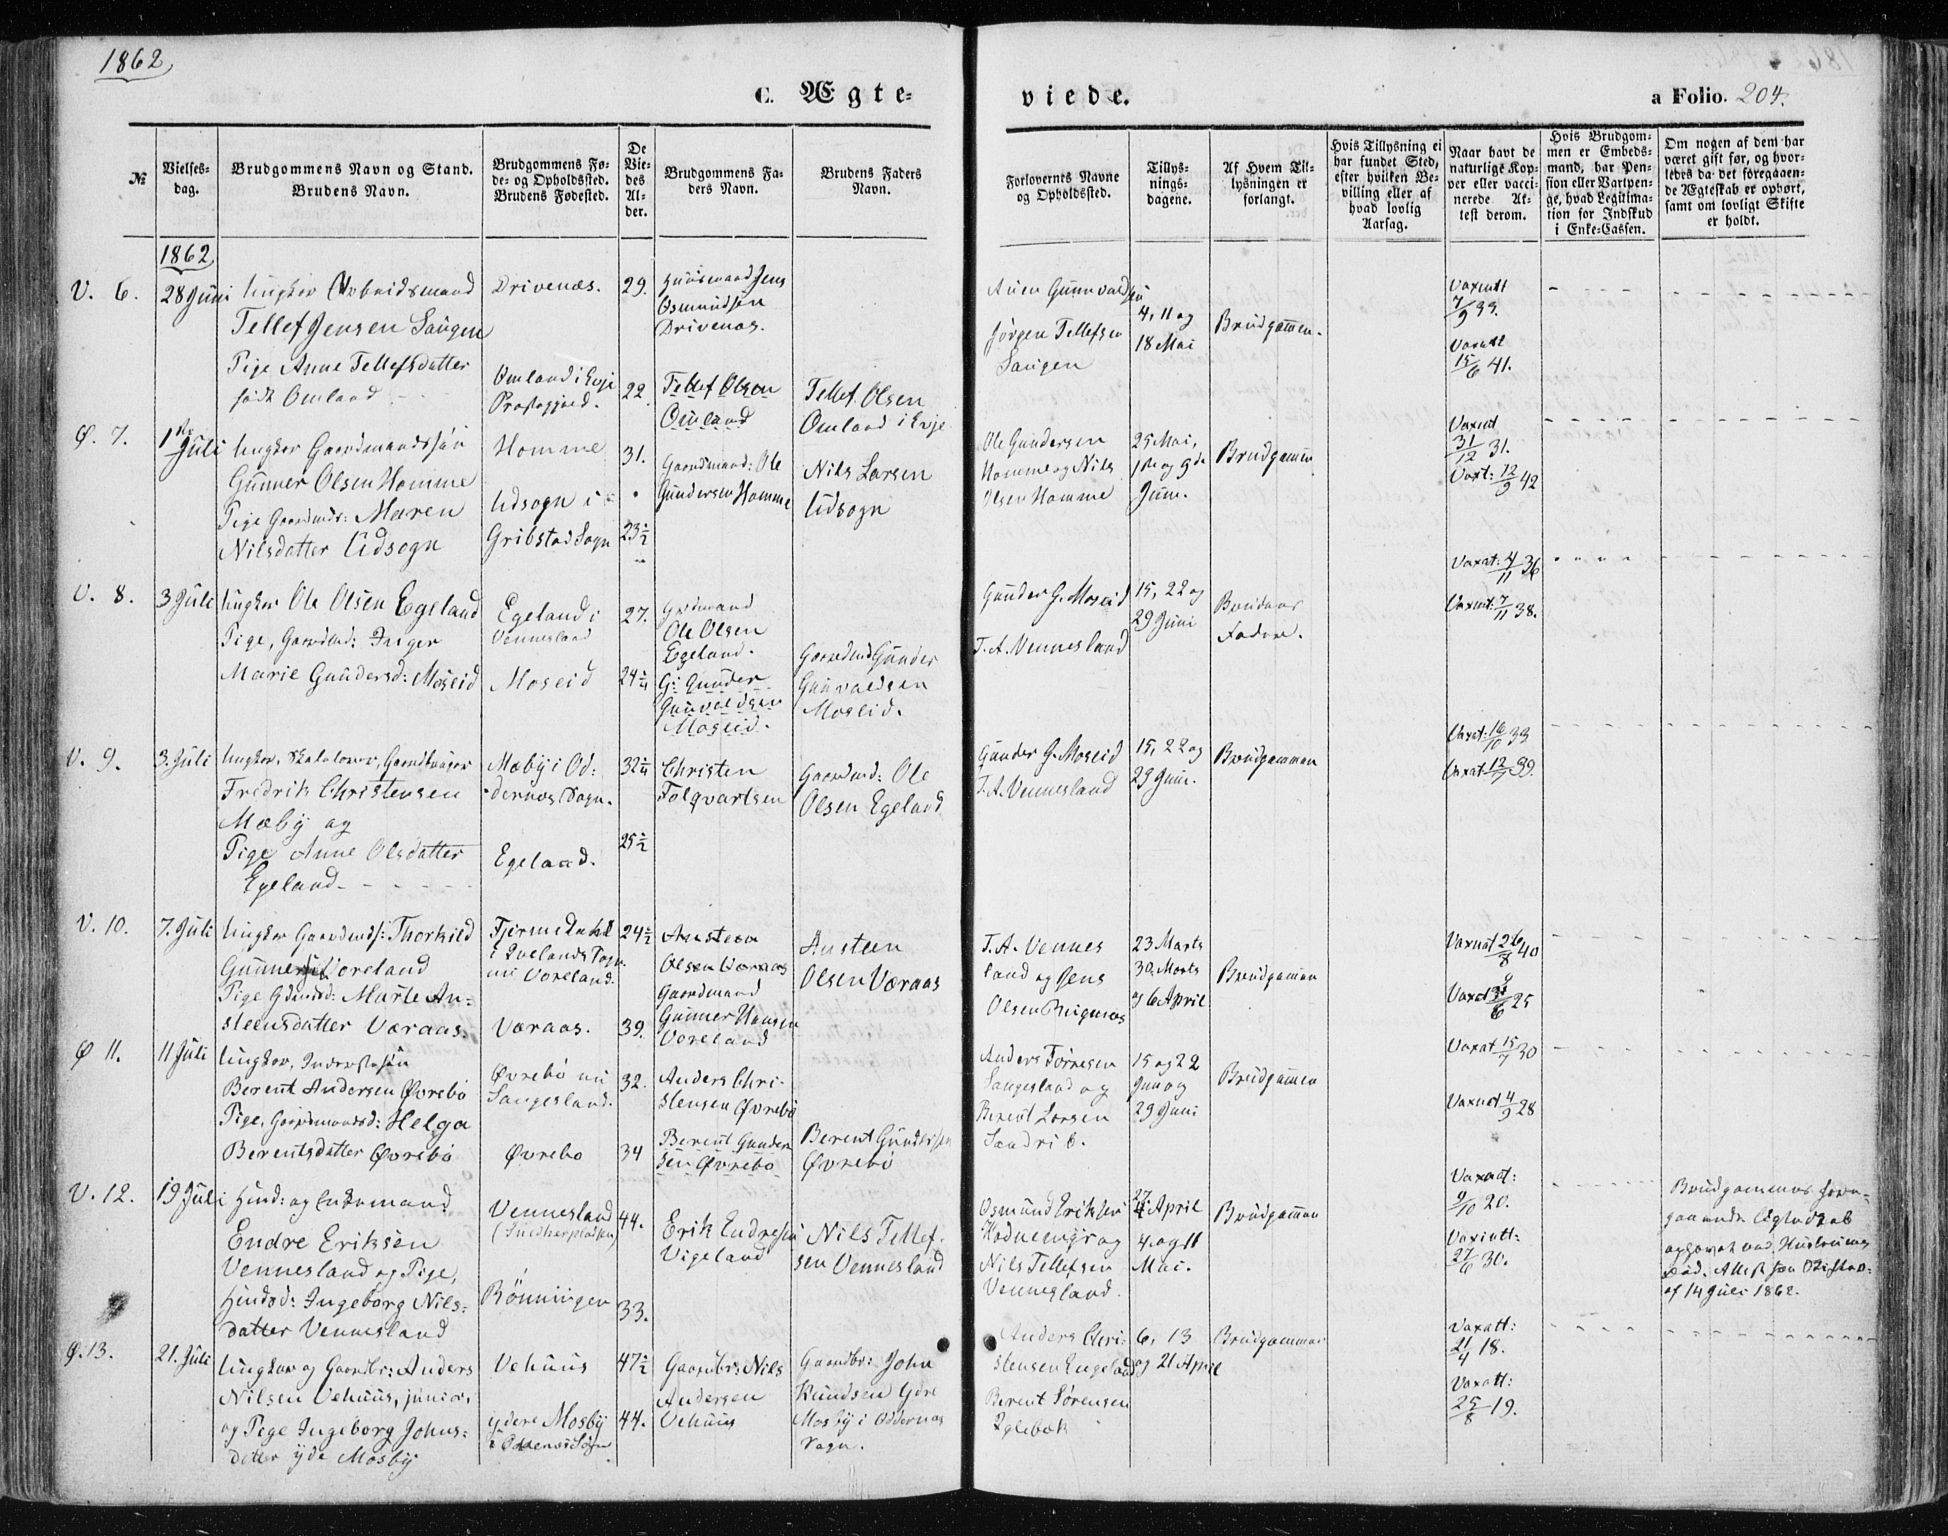 1862
C. Ægte-
viede.
a Folio. 204.
№
Vielses-
dag.
Brudgommens Navn og Stand.
Brudens Navn.
Brudgommens Fø-
de- og Opholdssted.
Brudens Fødested.
De
Vie-
des
Al-
der.
Brudgommens Fa-
ders Navn.
Brudens Faders
Navn.
Forlovernes Navne
og Opholdssted.
Tillys-
nings-
dagene.
Af Hvem Til-
lysningen er
forlangt.
Hvis Tillysning ei
har fundet Sted,
efter hvilken Be-
villing eller af
hvad lovlig
Aarsag.
Naar havt de
naturlige Kop-
per eller vacci-
nerede At-
test derom.
Hvis Brudgom-
men er Embeds-
mand, har Pen-
sion eller Vartpen-
ge, hvad Legitima-
tion for Indskud
i Enke-Cassen.
Om nogen af dem har
været gift før, og hvor-
ledes da det foregaaen-
de Ægteskab er ophørt,
samt om lovligt Skifte
er holdt.
1862
V. 6.
28 Juni
Ungkar Arbeidsmand
Tellef Jensen Saugen
Pige Anne Tellefsdatter
født Omland
Drivenæs.
Omland i Evje
Præstegjæld.
29.
22.
Huusmand Jens
Osmundsen
Drivenæs.
Tellef Olsen
Omland
Tellef Olsen
Omland i Evje
Aüen Gunnvaldsen
Jörgen Tellefsen
Saugen
4, 11 og
18 Mai
Brudgommen.
Vaxinatt
7/9 33.
Vaxinatt
15/6 41.
Ø. 7.
1ste Juli
Ungkar Gaardmandssøn
Gunner Olsen Homme
Pige Gaardmds: Maren
Nilsdatter Udsogn
Homme
Udsogn i
Gribstad Sogn
31.
23½
Gaardmand: Ole
Gundersen Homme
Nils Larsen
Udsogn
Ole Gundersen
Homme og Nils
Olsen Homme
25 Mai,
1ste og 9de
Juni.
Brudgommen
Vaxinat
31/12 31.
Vaxt: 12/9 42
V. 8.
3 Juli
Ungkar Ole Olsen Egeland
Pige, Gaardmd: Inger
Marie Gundersd: Moseid
Egeland i
Vennesland
Moseid
27.
24¼
Grdmand
Ole Olsen
Egeland.
G: Gunder
Gunvaldsen
Moseid.
Gaardmd Gunder
Gunvaldsen
Moseid.
Gunder G. Moseid
T. A. Vennesland
15, 22 og
29 Juni
Brudens
Fader.
Vaxat: 4/11 36
Vaxat: 7/11 38.
V. 9.
3. Juli
Ungkar, Skolelærer, Gaardbruger
Fredrik Christensen
Mæby og
Pige Anne Olsdatter
Egeland
Mæby i Od:
dernæs Sogn.
Egeland.
32¼
25½
Christen
Folqvartsen
Gaardmd: Ole
Olsen Egeland
Gunder G. Moseid
T. A. Vennesland
15, 22 og
29 Juni.
Brudgommen
Vaxat: 16/10 33
Vaxat: 12/7 39.
V. 10.
7. Juli
Ungkar Gaardmds: Thorkild
Gunnersen Voreland
Pige Gdmdsd: Marte An-
steensdatter Væraas.
Fjermedahl
i Ivelands Sogn
nu Voreland.
Væraas.
24½
39.
Ansteen
Olsen Væraas
Gaardmand
Gunner Hansen
Voreland
Ansteen
Olsen Væraas
T. A. Vennes
land og Jens
Olsen Rugenæs
23 Marts
30 Marts
og 6 April
Brudgommen
Vaxnat 26/8 40
Vaxat 6 25
Ø 11.
11 Juli
Ungkar, Inderstesøn
Berent Andersen Øvrebø
Pige, Gaardmandsd: Helga
Berentsdatter Øvrebø
Øvrebø nu
Sangesland.
Øvrebø
32.
34
Anders Chri-
stensen Øvrebø
Berent Gunder
sen Øvrebø
Berent Gundersen
Øvrebø
Anders Torresen
Sangesland og
Berent Larsen
15 og 22
Juni og
29 Juni
Brudgommen
Vaxat 15/7 30
Vaxnat 4/9 28
V. 12.
19 Juli
Huusd: og Enkemand
Endre Eriksen
Vennesland og Pige,
Huusd: Ingeborg Nils-
datter Vennesland
Vennesland
Rönningen
44.
33.
Erik Endresen
Vigeland
Nils Tellef-
sen Vennesland
Osmund Eriksen
Nils Tellefsen
Vennesland.
27 April
4. og 11
Mai.
Brudgommen
Vaxnat:
9/10 20.
Vaxinatt:
27/6 30.
Brudgommens fore-
gaaende Ægteskab
ophævet ved Hustruens
Død. Attest fra Skifter.
af 14 Juli 1862.
Ø. 13.
21. Juli
Ungkar og Gaardbr: Anders
Nilsen Vehuus, junior,
og Pige Ingeborg Johns-
datter ydre Mosby
Vehuus
ydere Mosby
i Oddernæs Sogn
47½
44.
Gaardbr: Nils
Andersen
Vehuus
Gaardbr: John
Knudsen ydre
Mosby i Oddernæs
Sogn.
Anders Chri-
stensen Engeland
Berent Sørensen
Eglebæk
6, 13
og 21 April
Brudgommen
Vaxatt:
21/4 18.
Vaxatt:
25/8 19.